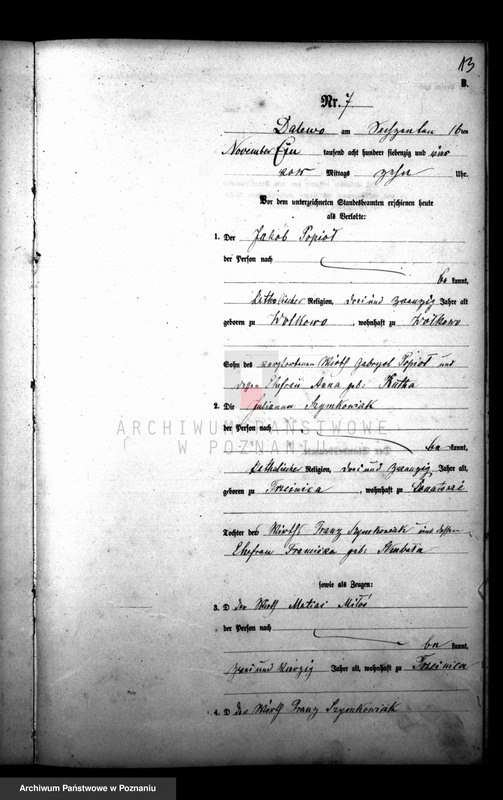 13
B.
Nr. 7
Dalewo am Sechzenten 16ten
November Ein tausend acht hundert siebenzig und vier
vor Mittags zehn Uhr.
Vor dem unterzeichneten Standesbeamten erschienen heute
als Verlobte:
1. Der Jakob Popiot
der Person nach
be kannt,
katholischer Religion, drei und zwanzig Jahre alt
geboren zu Wolkowo, wohnhaft zu Wolkowo
Sohn des verstorbenen Wirth Popiot und
dessen Ehefrau Anna geb: Kutka
2. Die Julianna Szymkowiak
der Person nach
be kannt,
katholischer Religion, drei und zwanzig Jahre alt,
geboren zu Trzcinica, wohnhaft zu
Tochter des Wirths Franz Szymkowiak und dessen
Ehefrau Franciska geb:
sowie als Zeugen:
3. D der Wirth Matias Miłos
der Person nach
be kannt,
zwei und vierzig Jahre alt, wohnhaft zu Trzcinica
4. D der Wirth Franz Szymkowiak
ARCHIWUM PAŃSTWOWE
W POZNANIU
Archiwum Państwowe w Poznaniu